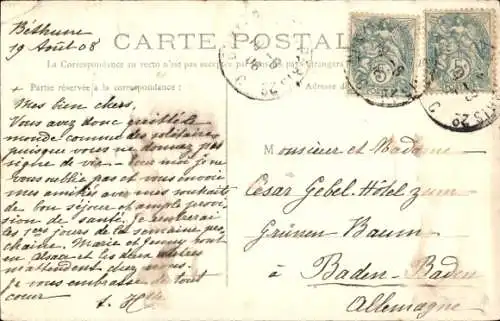 Béthune
19 Août 08
CARTE POSTALE
La Correspondance au recto n'est pas acceptée par étrangers
Partie réservée à la correspondance :
Adresse de
Mes bien chers,
Vous avez donc quitté le
monde comme des solitaires
puisque vous ne donnez pas
signe de vie - Mais moi je ne
vous oublie pas et vous envoie
mes amitiés avec mes souhaits
de bon séjour et ample provi
sion de santé. Je rentrerai
les 1ers jours de la semaine pro
chaine. Marie et Jenny sont
en Alsace et les deux autres
m'attendent chez nous.
Je vous embrasse de tout
cœur
Monsieur et Madame
César Gebel. Hôtel zum
Grünen Baum
à Baden-Baden
Allemagne